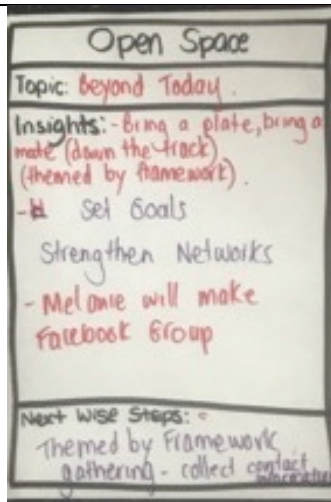 Open Space
Topic: Beyond Today.
Insights: - Bring a plate, bring a
mate (down the track)
(themed by framework).
- Set Goals
Strengthen Networks
- Melanie will make
Facebook Group
Next Wise Steps:
Themed by Framework
gathering - collect contact
information